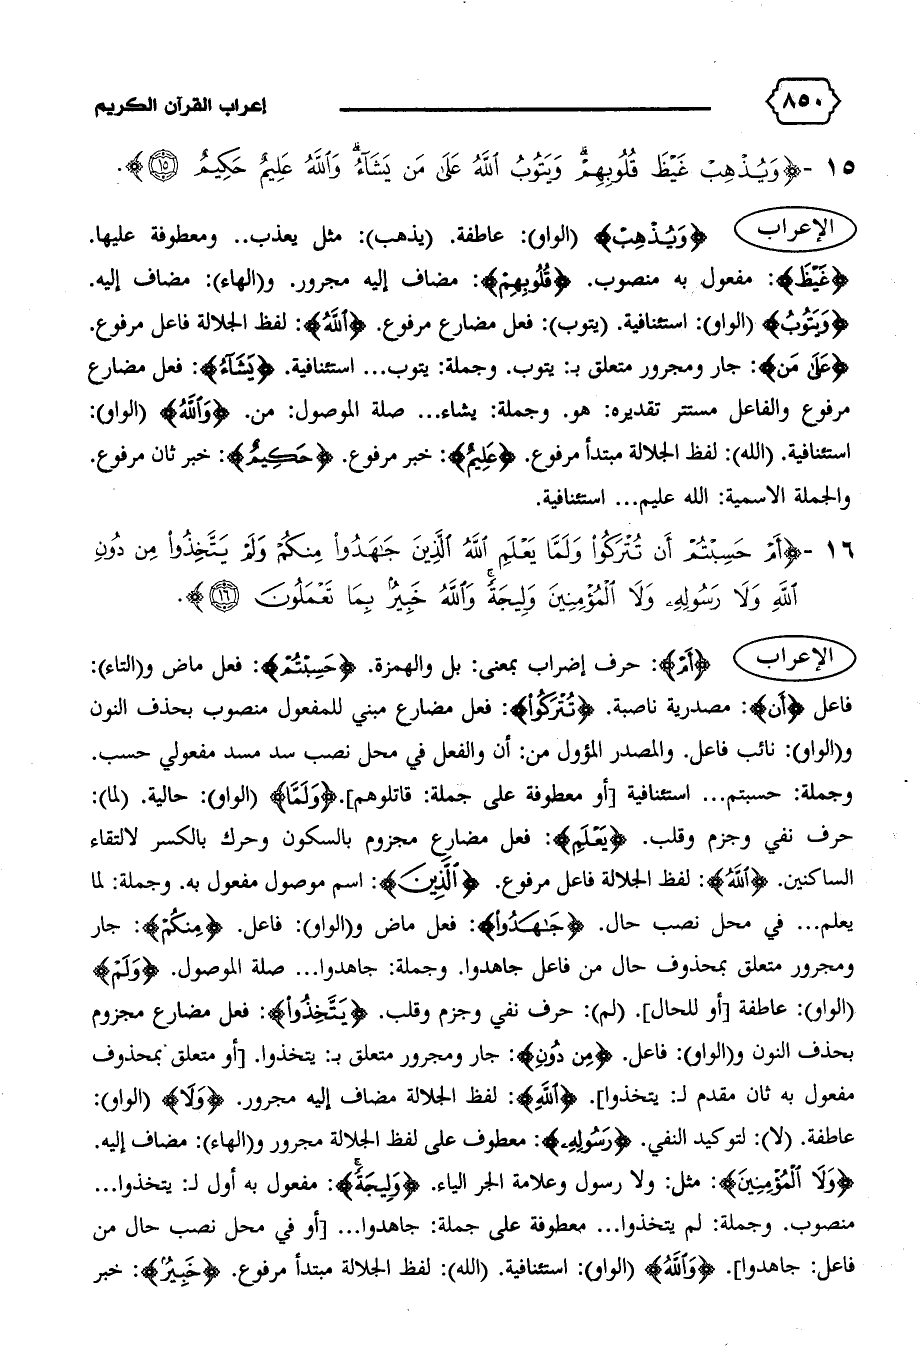 ﴿٨٥٠﴾ إعراب القرآن الكريم
١٥ - ﴿وَيُذْهِبْ غَيْظَ قُلُوبِهِمْ ۗ وَيَتُوبُ ٱللَّهُ عَلَىٰ مَن يَشَآءُ ۗ وَٱللَّهُ عَلِيمٌ حَكِيمٌ ١٥﴾.
الإعراب ﴿وَيُذْهِبْ﴾ (الواو): عاطفة. (يذهب): مثل يعذب.. ومعطوفة عليها.
﴿غَيْظَ﴾: مفعول به منصوب. ﴿قُلُوبِهِمْ﴾: مضاف إليه مجرور. و(الهاء): مضاف إليه.
﴿وَيَتُوبُ﴾ (الواو): استئنافية. (يتوب): فعل مضارع مرفوع. ﴿ٱللَّهُ﴾: لفظ الجلالة فاعل مرفوع.
﴿عَلَىٰ مَن﴾: جار ومجرور متعلق بـ: يتوب. وجملة: يتوب... استئنافية. ﴿يَشَآءُ﴾: فعل مضارع
مرفوع والفاعل مستتر تقديره: هو. وجملة: يشاء... صلة الموصول: من. ﴿وَٱللَّهُ﴾ (الواو):
استئنافية. (الله): لفظ الجلالة مبتدأ مرفوع. ﴿عَلِيمٌ﴾: خبر مرفوع. ﴿حَكِيمٌ﴾: خبر ثان مرفوع.
والجملة الاسمية: الله عليم... استئنافية.
١٦ - ﴿أَمْ حَسِبْتُمْ أَن تُتْرَكُوا۟ وَلَمَّا يَعْلَمِ ٱللَّهُ ٱلَّذِينَ جَـٰهَدُوا۟ مِنكُمْ وَلَمْ يَتَّخِذُوا۟ مِن دُونِ
ٱللَّهِ وَلَا رَسُولِهِۦ وَلَا ٱلْمُؤْمِنِينَ وَلِيجَةً ۚ وَٱللَّهُ خَبِيرٌۢ بِمَا تَعْمَلُونَ ١٦﴾.
الإعراب ﴿أَمْ﴾: حرف إضراب بمعنى: بل والهمزة. ﴿حَسِبْتُمْ﴾: فعل ماض و(التاء):
فاعل ﴿أَن﴾: مصدرية ناصبة. ﴿تُتْرَكُوا۟﴾: فعل مضارع مبني للمفعول منصوب بحذف النون
و(الواو): نائب فاعل. والمصدر المؤول من: أن والفعل في محل نصب سد مسد مفعولي حسب.
وجملة: حسبتم... استئنافية [أو معطوفة على جملة: قاتلوهم].﴿وَلَمَّا﴾ (الواو): حالية. (لما):
حرف نفي وجزم وقلب. ﴿يَعْلَمِ﴾: فعل مضارع مجزوم بالسكون وحرك بالكسر لالتقاء
الساكنين. ﴿ٱللَّهُ﴾: لفظ الجلالة فاعل مرفوع. ﴿ٱلَّذِينَ﴾: اسم موصول مفعول به. وجملة: لما
يعلم... في محل نصب حال. ﴿جَـٰهَدُوا۟﴾: فعل ماض و(الواو): فاعل. ﴿مِنكُمْ﴾: جار
ومجرور متعلق بمحذوف حال من فاعل جاهدوا. وجملة: جاهدوا... صلة الموصول. ﴿وَلَمْ﴾
(الواو): عاطفة [أو للحال]. (لم): حرف نفي وجزم وقلب. ﴿يَتَّخِذُوا۟﴾: فعل مضارع مجزوم
بحذف النون و(الواو): فاعل. ﴿مِن دُونِ﴾: جار ومجرور متعلق بـ: يتخذوا. [أو متعلق بمحذوف
مفعول به ثان مقدم لـ: يتخذوا]. ﴿ٱللَّهِ﴾: لفظ الجلالة مضاف إليه مجرور. ﴿وَلَا﴾ (الواو):
عاطفة. (لا): لتوكيد النفي. ﴿رَسُولِهِۦ﴾: معطوف على لفظ الجلالة مجرور و(الهاء): مضاف إليه.
﴿وَلَا ٱلْمُؤْمِنِينَ﴾: مثل: ولا رسول وعلامة الجر الياء. ﴿وَلِيجَةً ۚ﴾: مفعول به أول لـ: يتخذوا...
منصوب. وجملة: لم يتخذوا... معطوفة على جملة: جاهدوا... [أو في محل نصب حال من
فاعل: جاهدوا]. ﴿وَٱللَّهُ﴾ (الواو): استئنافية. (الله): لفظ الجلالة مبتدأ مرفوع. ﴿خَبِيرٌۢ﴾: خبر